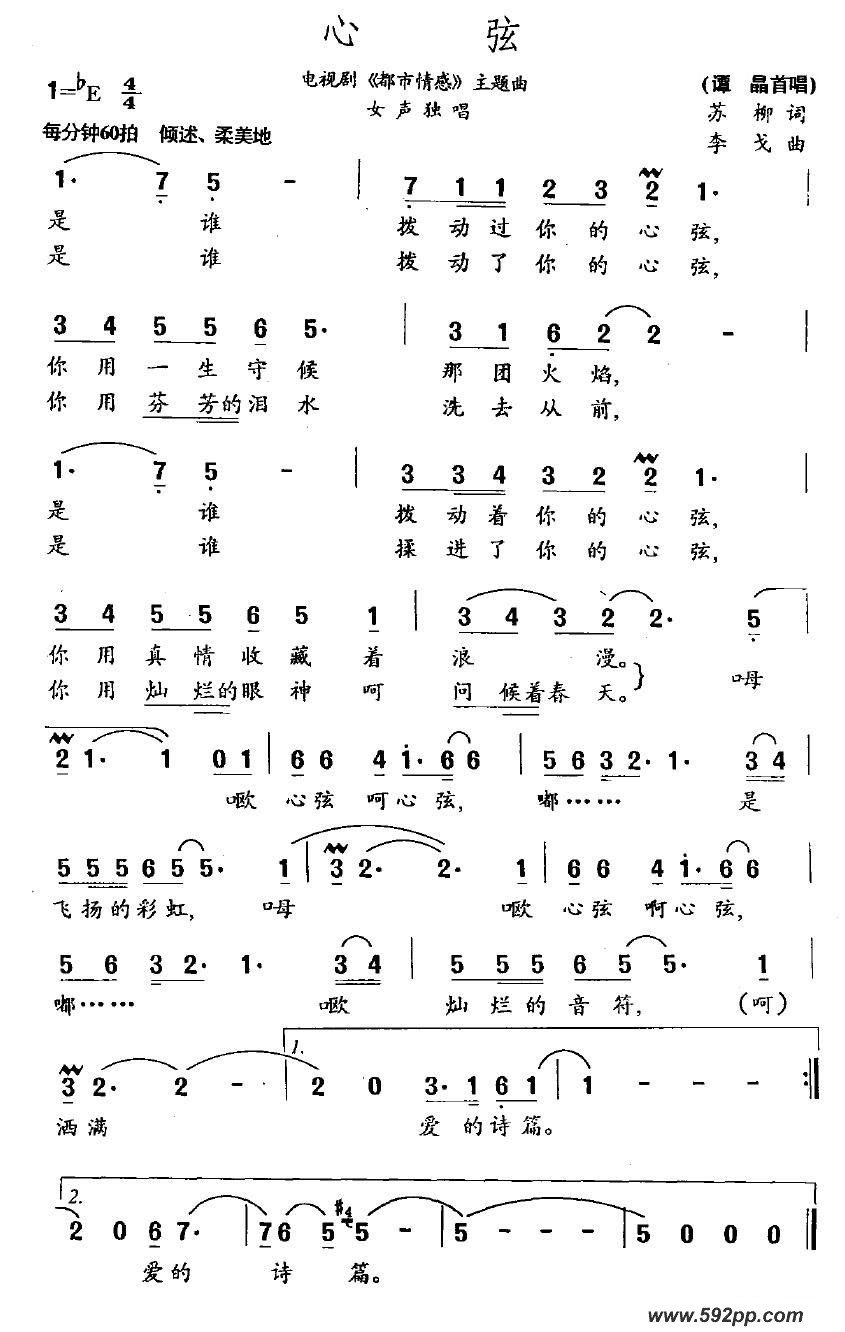 心 弦
电视剧《都市情感》主题曲
女声独唱
(谭 晶首唱)
苏 柳 词
李 戈 曲
1=♭E 4/4
每分钟60拍 倾述、柔美地
1· 7 5 - | 7 1 1 2 3 2 1· |
是 谁 拨 动 过 你 的 心 弦,
是 谁 拨 动 了 你 的 心 弦,
3 4 5 5 6 5· | 3 1 6 2 2 - |
你 用 一 生 守 候 那 团 火 焰,
你 用 芬 芳的 泪 水 洗 去 从 前,
1· 7 5 - | 3 3 4 3 2 2 1· |
是 谁 拨 动 着 你 的 心 弦,
是 谁 揉 进 了 你 的 心 弦,
3 4 5 5 6 5 1 | 3 4 3 2 2· 5 |
你 用 真 情 收 藏 着 浪 漫。 呣
你 用 灿 烂的 眼 神 呵 问 候着 春 天。
2 1· 1 0 1 | 6 6 4 1· 6 6 | 5 6 3 2· 1· 3 4 |
呕 心弦 呵心 弦, 嘟…… 是
5 5 5 6 5 5· 1 | 3 2· 2· 1 | 6 6 4 1· 6 6 |
飞扬的彩虹, 呣 呕 心弦 啊心弦,
5 6 3 2· 1· 3 4 | 5 5 5 6 5 5· 1 |
嘟…… 呕 灿 烂的 音 符, (呵)
3 2· 2 - - | 1. 2 0 3· 1 6 1 | 1 - - - :|
洒 满 爱 的 诗 篇。
2. 2 0 6 7· | 7 6 5 #4 5 - - | 5 - - - | 5 0 0 0 |
爱 的 诗 篇。
www.592pp.com